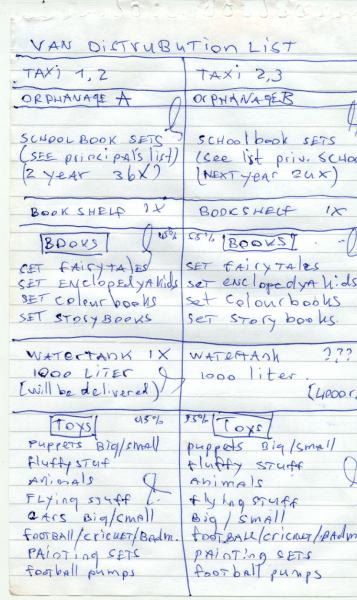 VAN DISTRUBUTION LIST
TAXI 1,2
ORPHANAGE A
SCHOOLBOOK SETS
(SEE principals list)
(2 year 36x?
BOOKSHELF 1X
BOOKS 45%
SET FAIRYTALES
SET ENCLOPEDYA kids
SET colour books
SET STORYBOOKS
WATERTANK 1X
1000 LITER
(will be delivered)
Toys 45%
puppets Big/small
fluffy stuf
Animals
FLying stuff
CARS Big/small
FOOTBALL/cricket/Badm.
PAinting SETS
football pumps
TAXI 2,3
ORPHANAGE B
Schoolbook SETS
(see list priv. SCHOO
(NEXT year 24x)
BOOKSHELF 1X
55% BOOKS
SET FAIRYTALES
set enclopedya kids
Set Colourbooks
Set Story books.
WATERTANK ???
1000 liter.
(4000r.
55% Toys
puppets Big/small
Fluffy STUFF
Animals
flying stuff
Big/small
FOOTBALL/cricket/BADm
PAINTING SETS
football pumps